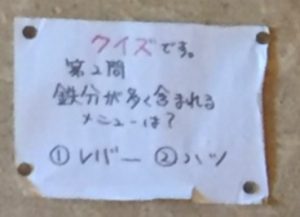 クイズです。
第2問
鉄分が多く含まれる
メニューは?
①レバー ②ハツ